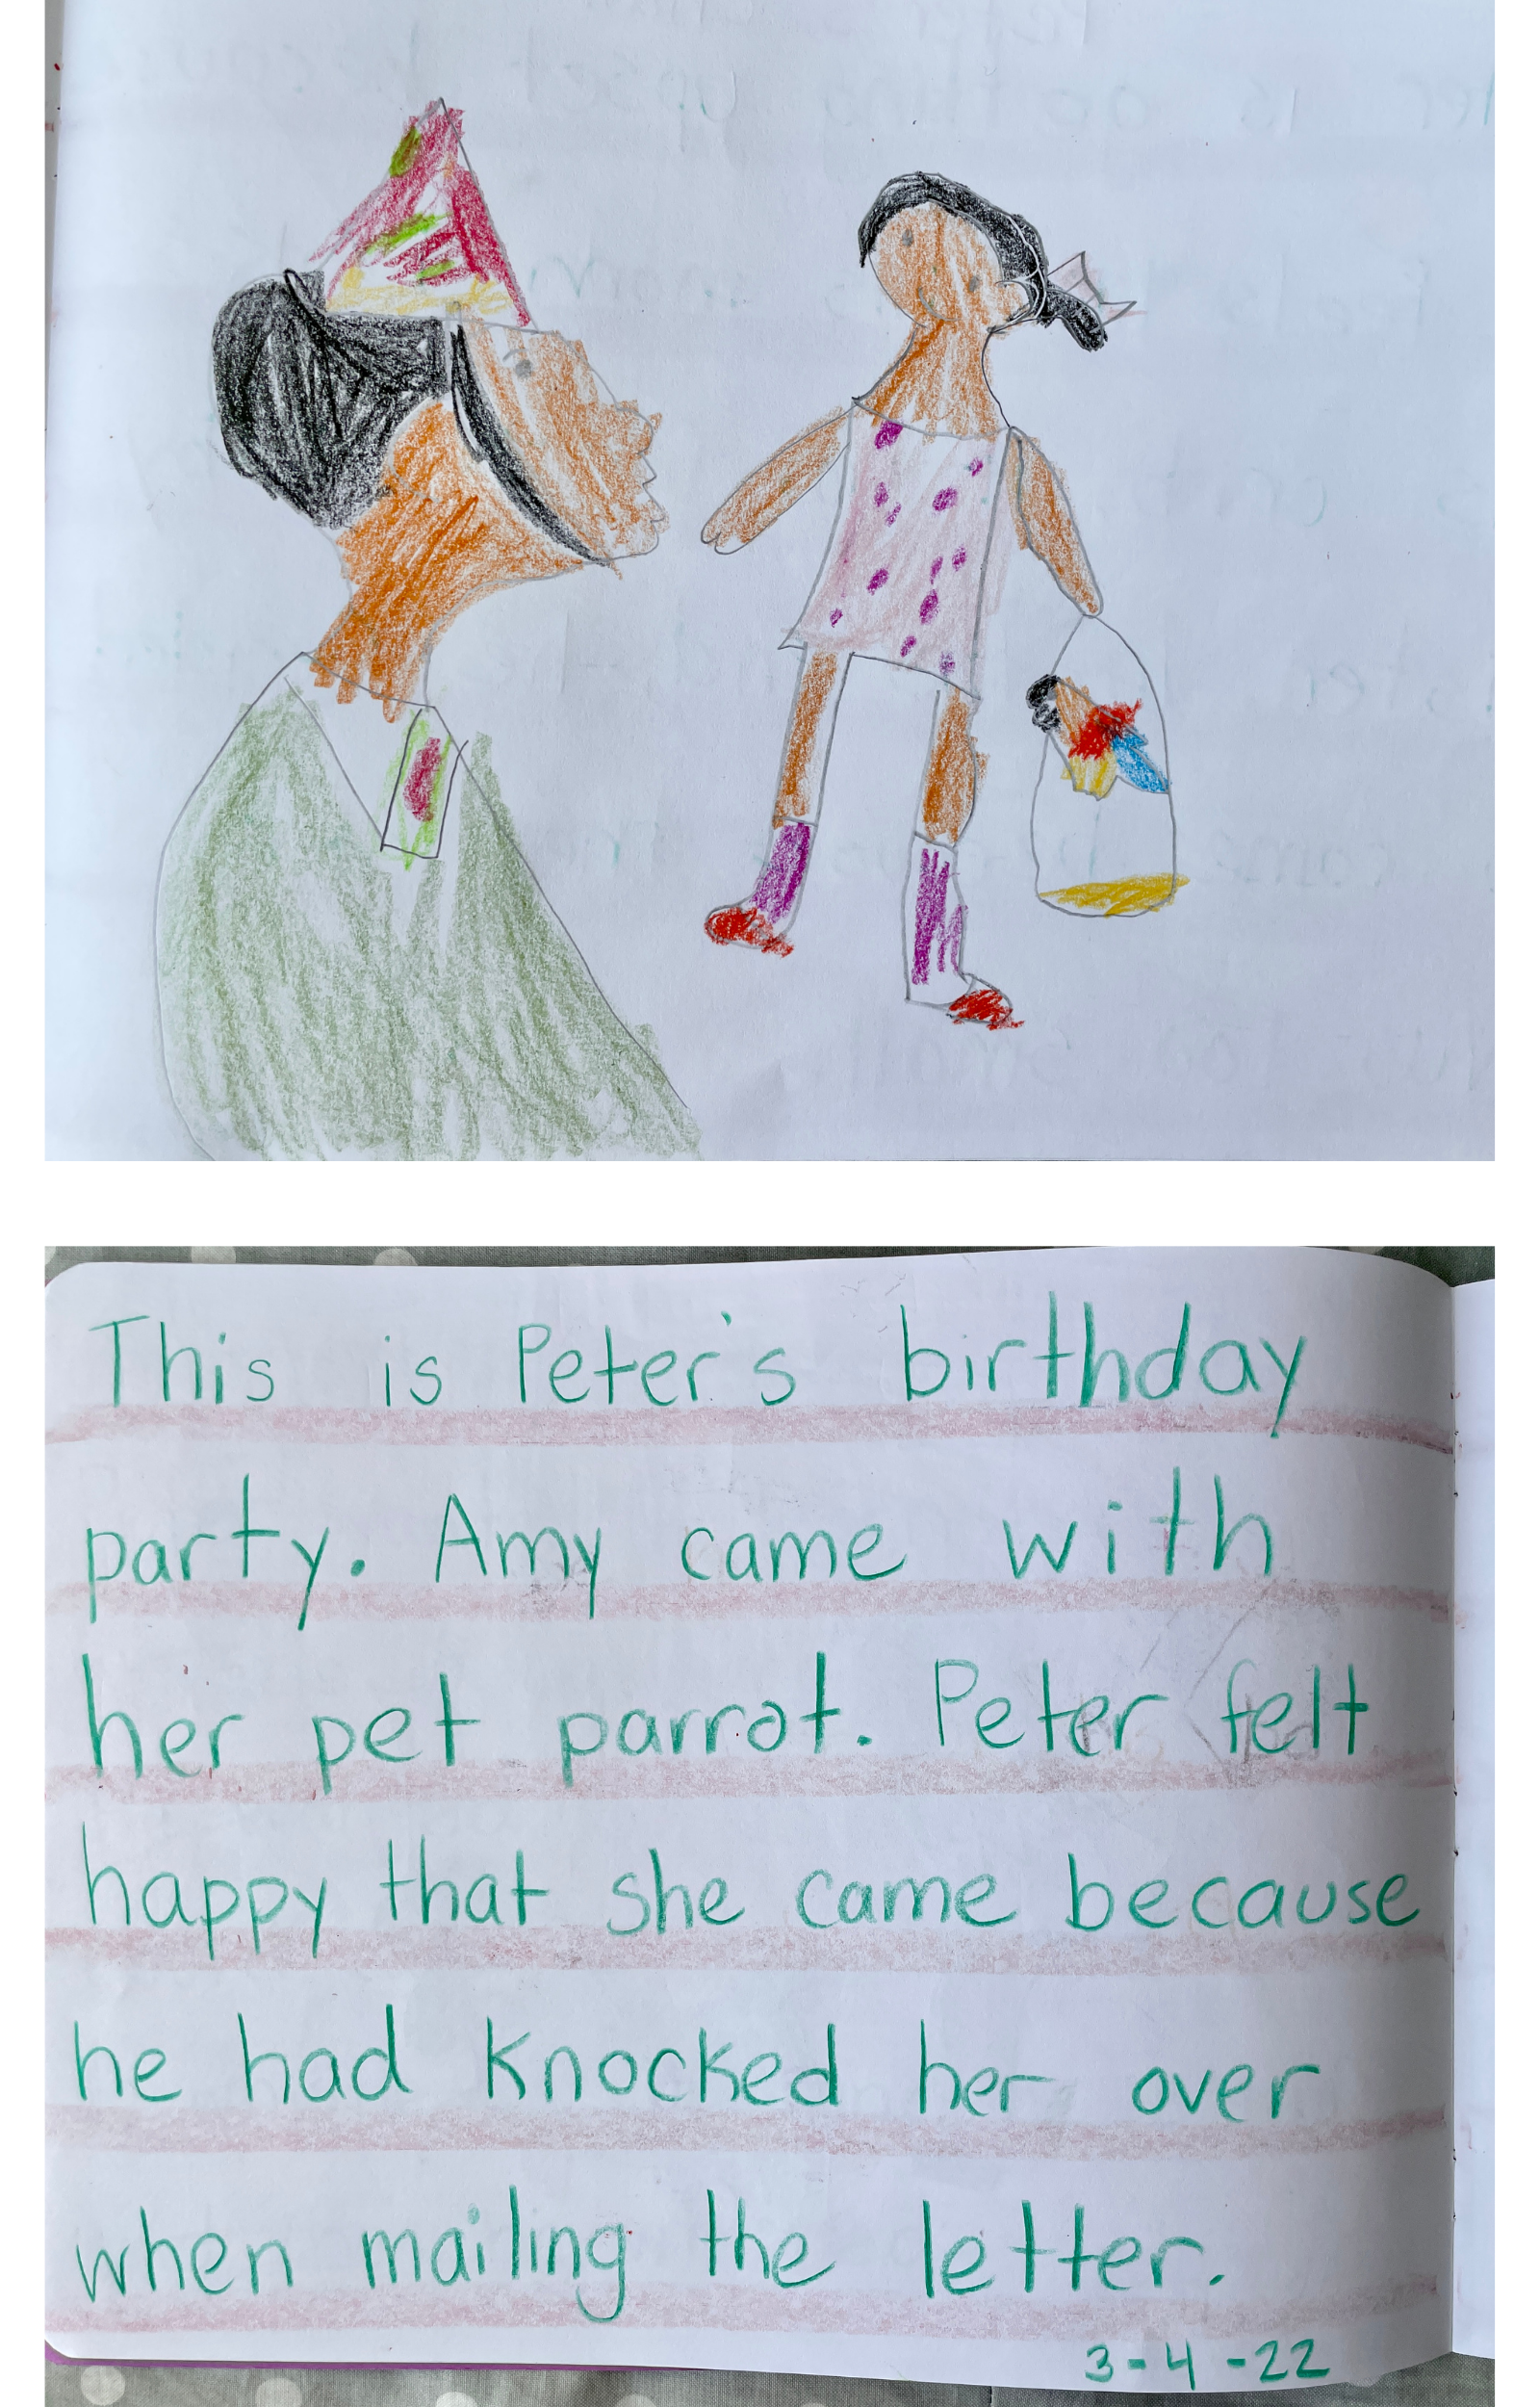 This is Peter's birthday
party. Amy came with
her pet parrot. Peter felt
happy that she came because
he had knocked her over
when mailing the letter.
3-4-22